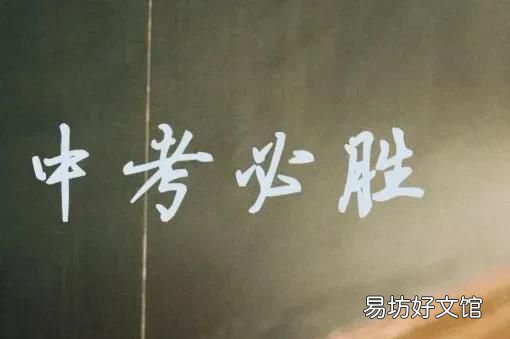 中考必胜
易坊好文馆